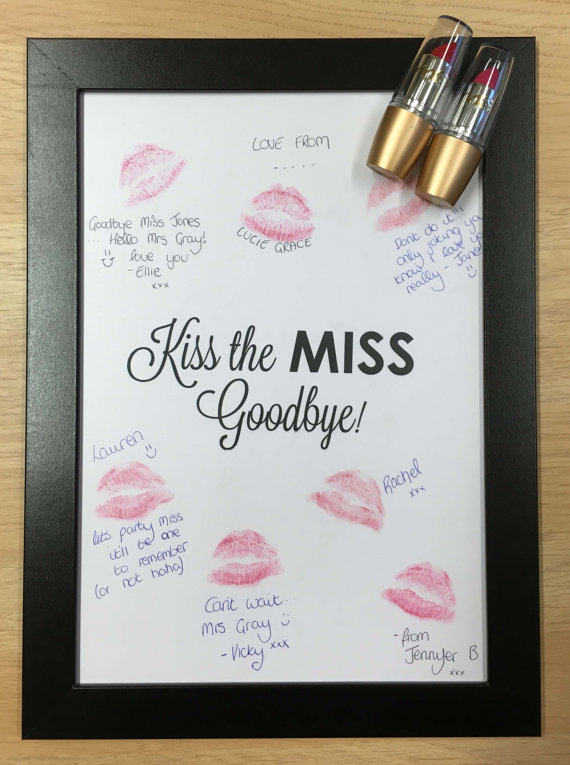 LOVE FROM
.....
LUCIE GRACE
Goodbye Miss Jones
... Hello Mrs Gray!
love you
- Ellie
xxx
Dont do it!!!
only joking you
know i love you
really - Janet
Kiss the MISS
Goodbye!
Lauren
lets party miss
it'll be one
to remember
(or not haha)
Rachel
xxx
Can't wait...
Mrs Gray
- Vicky xxx
- from
Jennyfer B
xxx